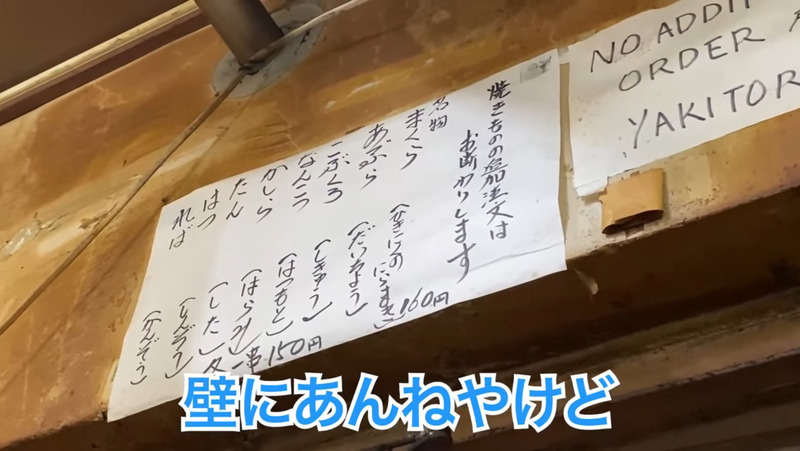 焼きものの追加注文は
お断わりします
名物
まくら (ひきにくの にらまき) 160円
あぶら (だいちょう)
こぶくろ (しきゅう)
なんこつ (はつもと)
かしら (はらみ)
たん (した)
はつ (しんぞう)
れば (かんぞう)
各一串150円
NO ADDIT
ORDER
YAKITOR
壁にあんねやけど